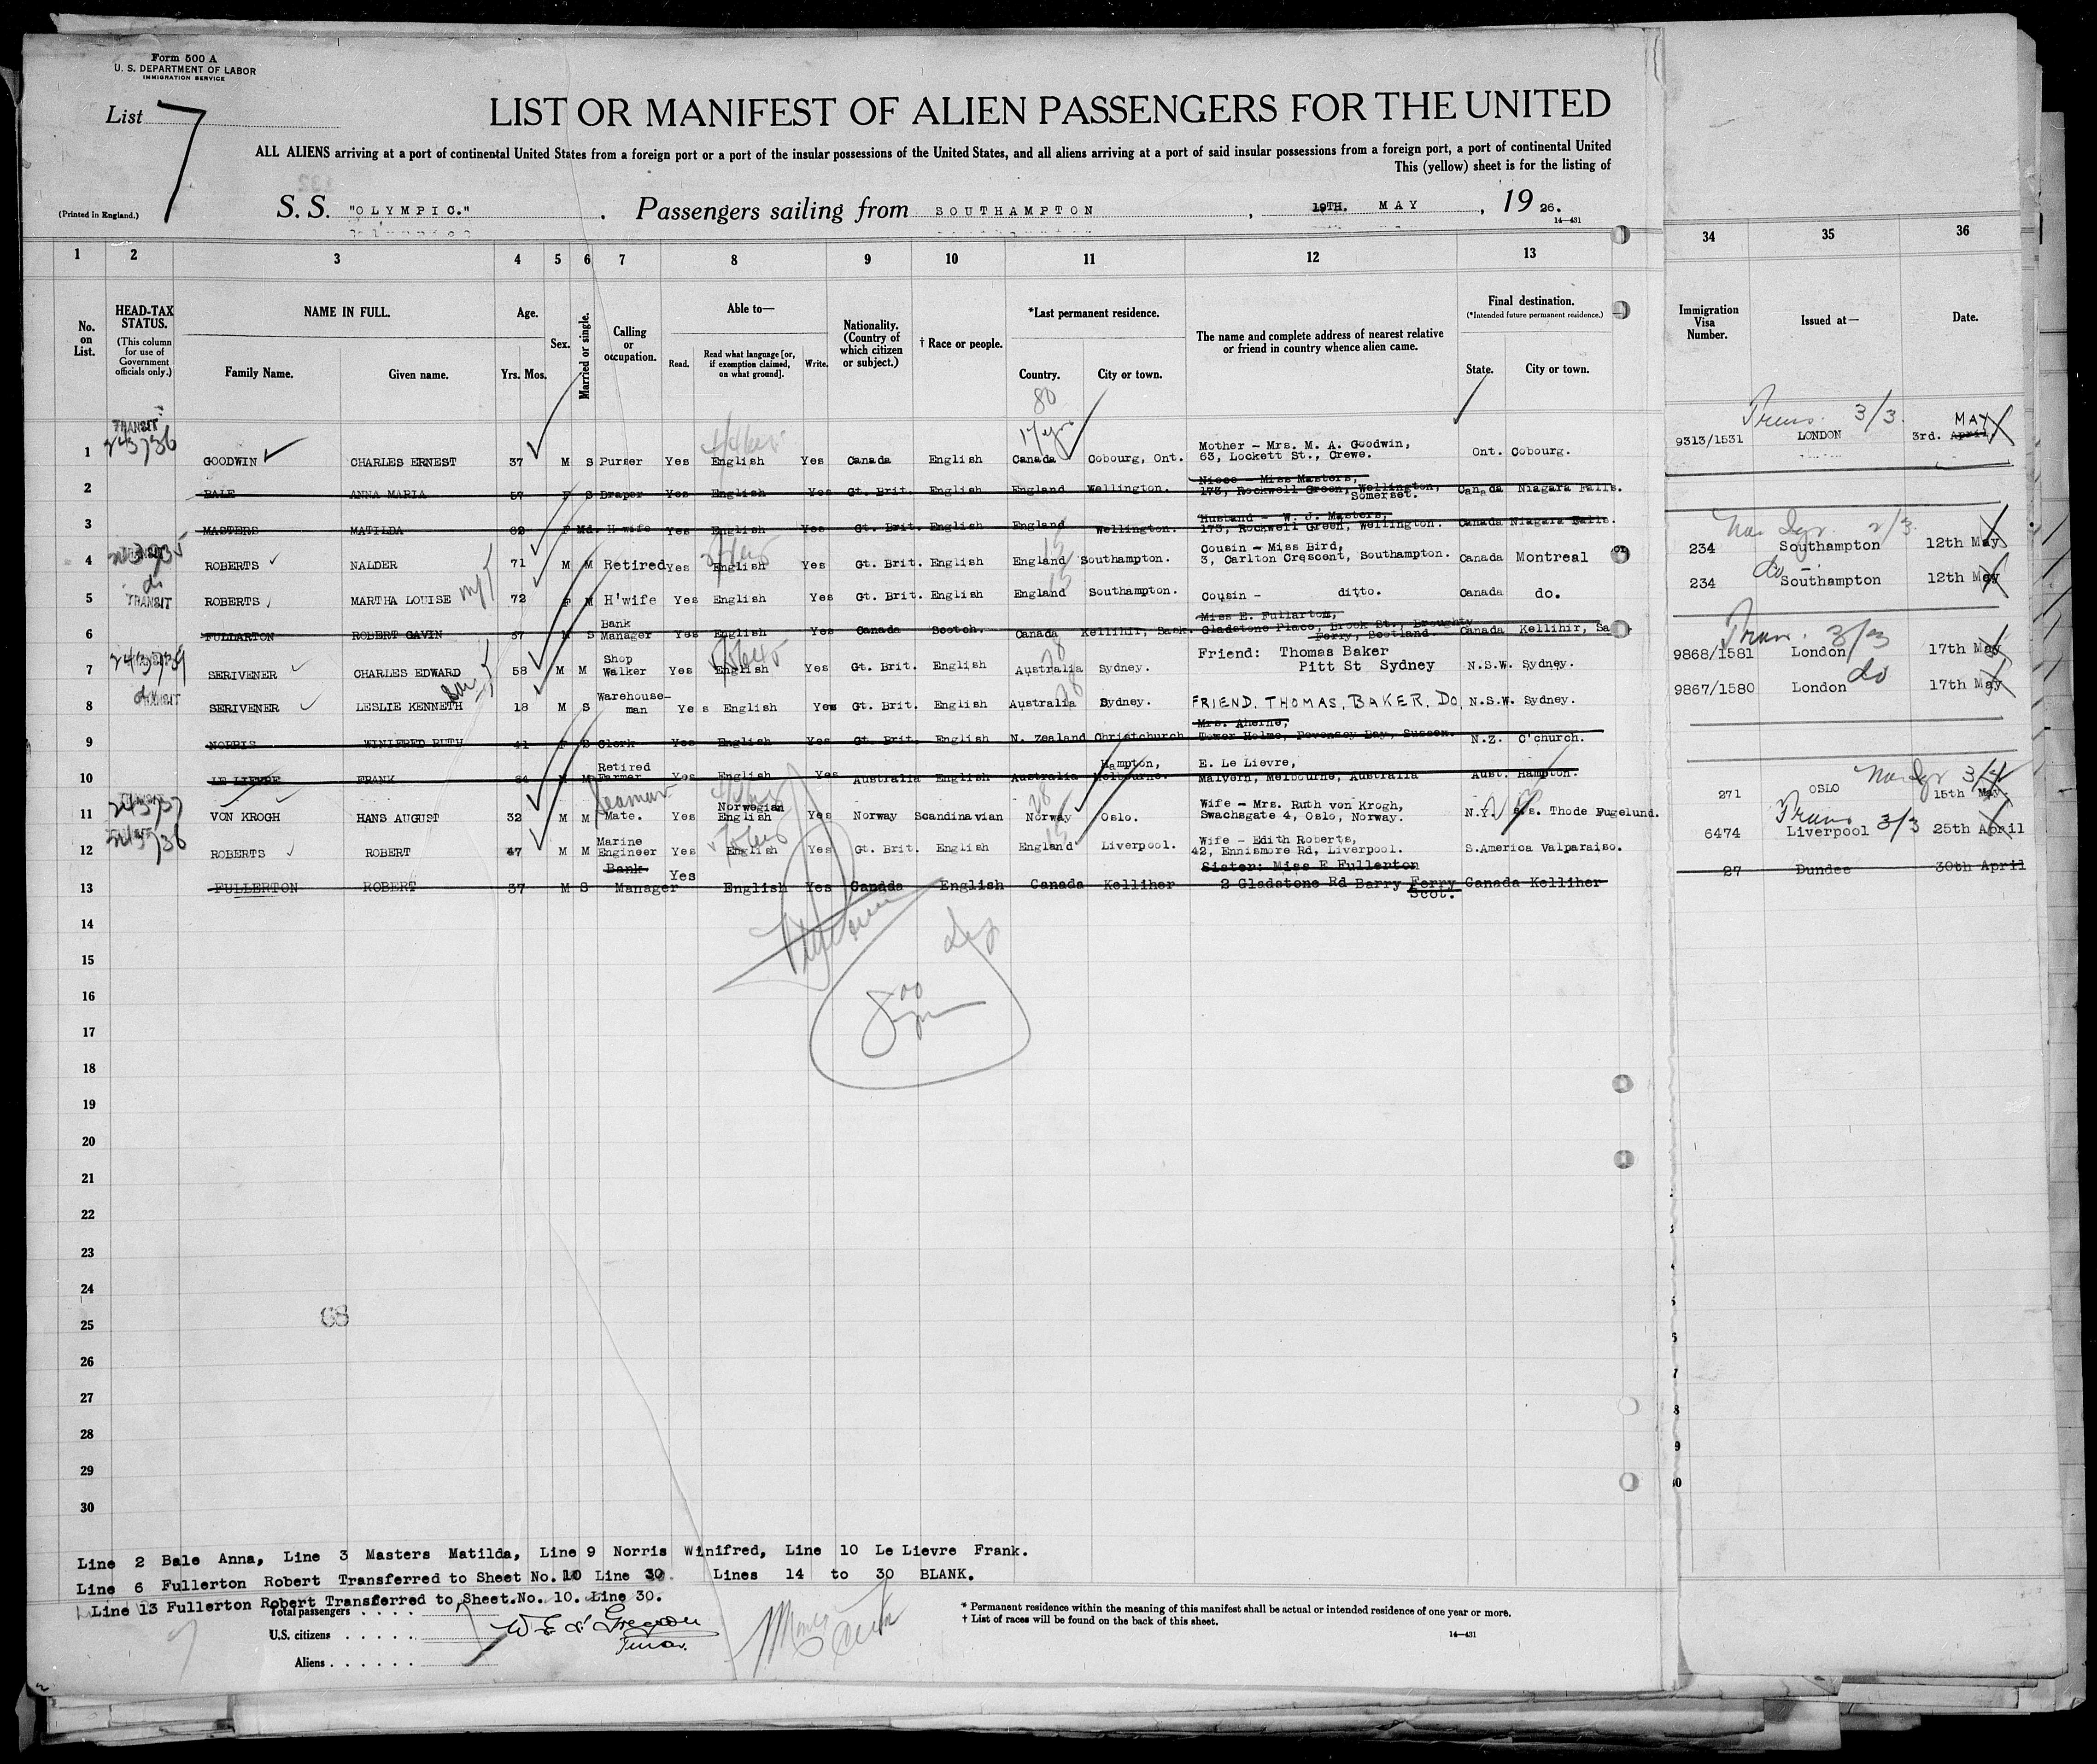 Form 500 A
U. S. DEPARTMENT OF LABOR
IMMIGRATION SERVICE
List 7
LIST OR MANIFEST OF ALIEN PASSENGERS FOR THE UNITED
ALL ALIENS arriving at a port of continental United States from a foreign port or a port of the insular possessions of the United States, and all aliens arriving at a port of said insular possessions from a foreign port, a port of continental United
This (yellow) sheet is for the listing of
(Printed in England.)
S. S. "OLYMPIC." . Passengers sailing from SOUTHAMPTON , 19TH. MAY , 19 26.
14—431
1 2 3 4 5 6 7 8 9 10 11 12 13 34 35 36
No. on List.
HEAD-TAX STATUS.
(This column for use of Government officials only.)
NAME IN FULL.
Family Name. Given name.
Age.
Yrs. Mos.
Sex.
Married or single.
Calling or occupation.
Able to—
Read. Read what language [or, if exemption claimed, on what ground]. Write.
Nationality. (Country of which citizen or subject.)
† Race or people.
*Last permanent residence.
Country. City or town.
The name and complete address of nearest relative or friend in country whence alien came.
Final destination.
(*Intended future permanent residence.)
State. City or town.
Immigration Visa Number.
Issued at—
Date.
80
TRANSIT
1 GOODWIN CHARLES ERNEST 37 M S Purser Yes English Yes Canada English Canada Cobourg, Ont. Mother - Mrs. M. A. Goodwin, 63, Lockett St., Crewe. Ont. Cobourg. 9313/1531 LONDON 3rd. April MAY
2 BALE ANNA MARIA 57 F S Draper Yes English Yes Gt. Brit. English England Wellington. Niece - Miss Masters, 173, Rockwell Green, Wellington, Somerset. Canada Niagara Falls.
3 MASTERS MATILDA 62 F Md. H'wife Yes English Yes Gt. Brit. English England Wellington. Husband - W. J. Masters, 173, Rockwell Green, Wellington. Canada Niagara Falls.
4 TRANSIT ROBERTS NALDER 71 M M Retired Yes English Yes Gt. Brit. English England Southampton. Cousin - Miss Bird, 3, Carlton Crescent, Southampton. Canada Montreal 234 Southampton 12th May
5 do TRANSIT ROBERTS MARTHA LOUISE 72 F M H'wife Yes English Yes Gt. Brit. English England Southampton. Cousin - ditto. Canada do. 234 do Southampton 12th May
6 FULLARTON ROBERT GAVIN 37 M S Bank Manager Yes English Yes Canada Scotch. Canada Kellihir, Sask. Miss E. Fullarton, Gladstone Place, Brook St., Broughty Ferry, Scotland Canada Kellihir, Sa
7 SERIVENER CHARLES EDWARD 58 M M Shop Walker Yes English Yes Gt. Brit. English Australia Sydney. Friend: Thomas Baker Pitt St Sydney N.S.W. Sydney. 9868/1581 London 17th May
8 do TRANSIT SERIVENER LESLIE KENNETH 18 M S Warehouse-man Yes English Yes Gt. Brit. English Australia Sydney. FRIEND. THOMAS. BAKER. DO. N.S.W. Sydney. 9867/1580 London do 17th May
9 NORRIS WINIFRED RUTH 41 F S Clerk Yes English Yes Gt. Brit. English N. Zealand Christchurch Mrs. Aherne, Tower Holme, Pevensey Bay, Sussex. N.Z. C'church.
10 LE LIEVRE FRANK 64 M M Retired Farmer Yes English Yes Australia English Australia Hampton, Melbourne. E. Le Lievre, Malvern, Melbourne, Australia Aust. Hampton.
11 VON KROGH HANS AUGUST 32 M M Seaman Mate. Yes Norwegian English Yes Norway Scandinavian Norway Oslo. Wife - Mrs. Ruth von Krogh, Swachsgate 4, Oslo, Norway. N.Y. s.s. Thode Fugelund. 271 OSLO 15th May
12 ROBERTS ROBERT 47 M M Marine Engineer Yes English Yes Gt. Brit. English England Liverpool. Wife - Edith Roberts, 42, Ennismore Rd, Liverpool. S.America Valparaiso. 6474 Liverpool 3/3 25th April
13 FULLERTON ROBERT 37 M S Bank Manager Yes English Yes Canada English Canada Kelliher Sister: Miss E Fullerton 2 Gladstone Rd Barry Ferry Scot. Canada Kelliher 27 Dundee 30th April
14
15
16
17
18
19
20
21
22
23
24
25
26
27
28
29
30
68
Line 2 Bale Anna, Line 3 Masters Matilda, Line 9 Norris Winifred, Line 10 Le Lievre Frank.
Line 6 Fullerton Robert Transferred to Sheet No. 10 Line 30. Lines 14 to 30 BLANK.
Line 13 Fullerton Robert Transferred to Sheet.No. 10. Line 30.
Total passengers
U.S. citizens
Aliens
* Permanent residence within the meaning of this manifest shall be actual or intended residence of one year or more.
† List of races will be found on the back of this sheet.
14—431